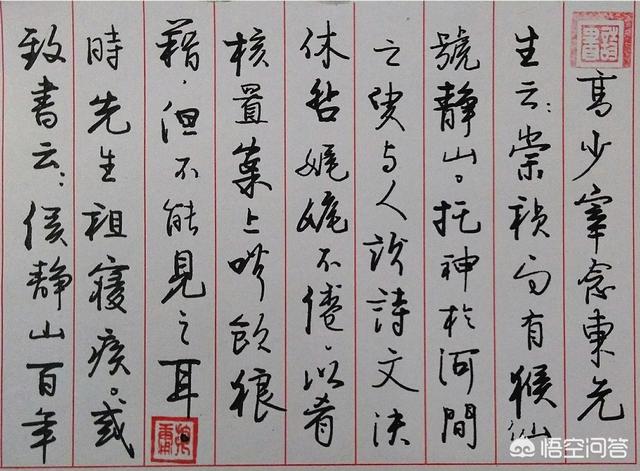 高少宰念東先
生云：崇禎间有猴仙
號静山。托神於河間
之叟与人談詩文決
休咎娓娓不倦。以肴
核置案上啖飲狼
藉，但不能見之耳
時先生祖寢疾。或
致書云：侯静山百年
悟空问答